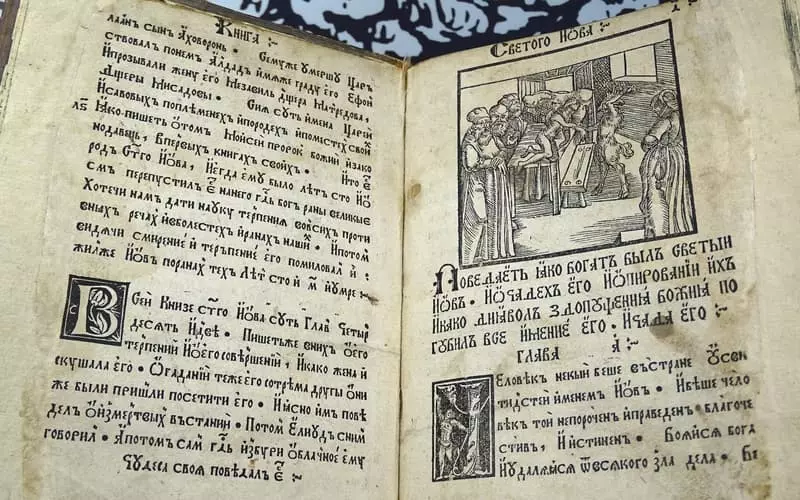 Книга :~
лаан сын Аховоронь · Семуже умершу царъ
ствовал понем Алдад имяже граду его Ефои
Ипрозывали жену его Мезавиль дщера Матредова,
дщеры Мисадовы · Сия суть имена Царей
Исавовых поплеменех ипородех ипоместех своих
Іако пишеть отом Мойсеи пророк божий изако
нодавець, Впервых книгах своих · Ито є
род Ст҃го Иова, Иегда ему было лѣт сто Ио
см перепустил є нанего га҃ь бог раны великиє
Хотечи нам дати науку терпения вовсих проти
вных речах иеволестех иранах наши · Ипотом
видячи смирение и терьпение его помиловал и :
жилже Иовъ поранах тех лѣт сто и м҃ иумре :~
Всей Книзе ст҃го Иова суть Глав Четыр
десять Идве · Пишетьже вних оего
терпений Иоего совершений, Икако жена и
скушала его · Огадании теже его сотрема други они
же были пришли посетити его · Иясно им пове
дел оизмертвых въстании · Потом Елиудъ сним
говорил · Апотом сам га҃ь избури облачное ему
Чудеса своя поведал є :~
Светого Иова :~
Поведаеть іако богат былъ светыи
Иовъ · Иочадех его Иопировании их
Икако диявол здопущения божия по
губил все имение его · Ичада его :~
глава а҃ :~
Человѣкъ некый беше въстране Оусен
тидстей именем Иовъ · Ибѣше чело
вѣкъ той непорочен иправеден · благоче
стив, Иистинен · Бояйся бога
Иоудаляйся ѿвсякого зла дела · Бе